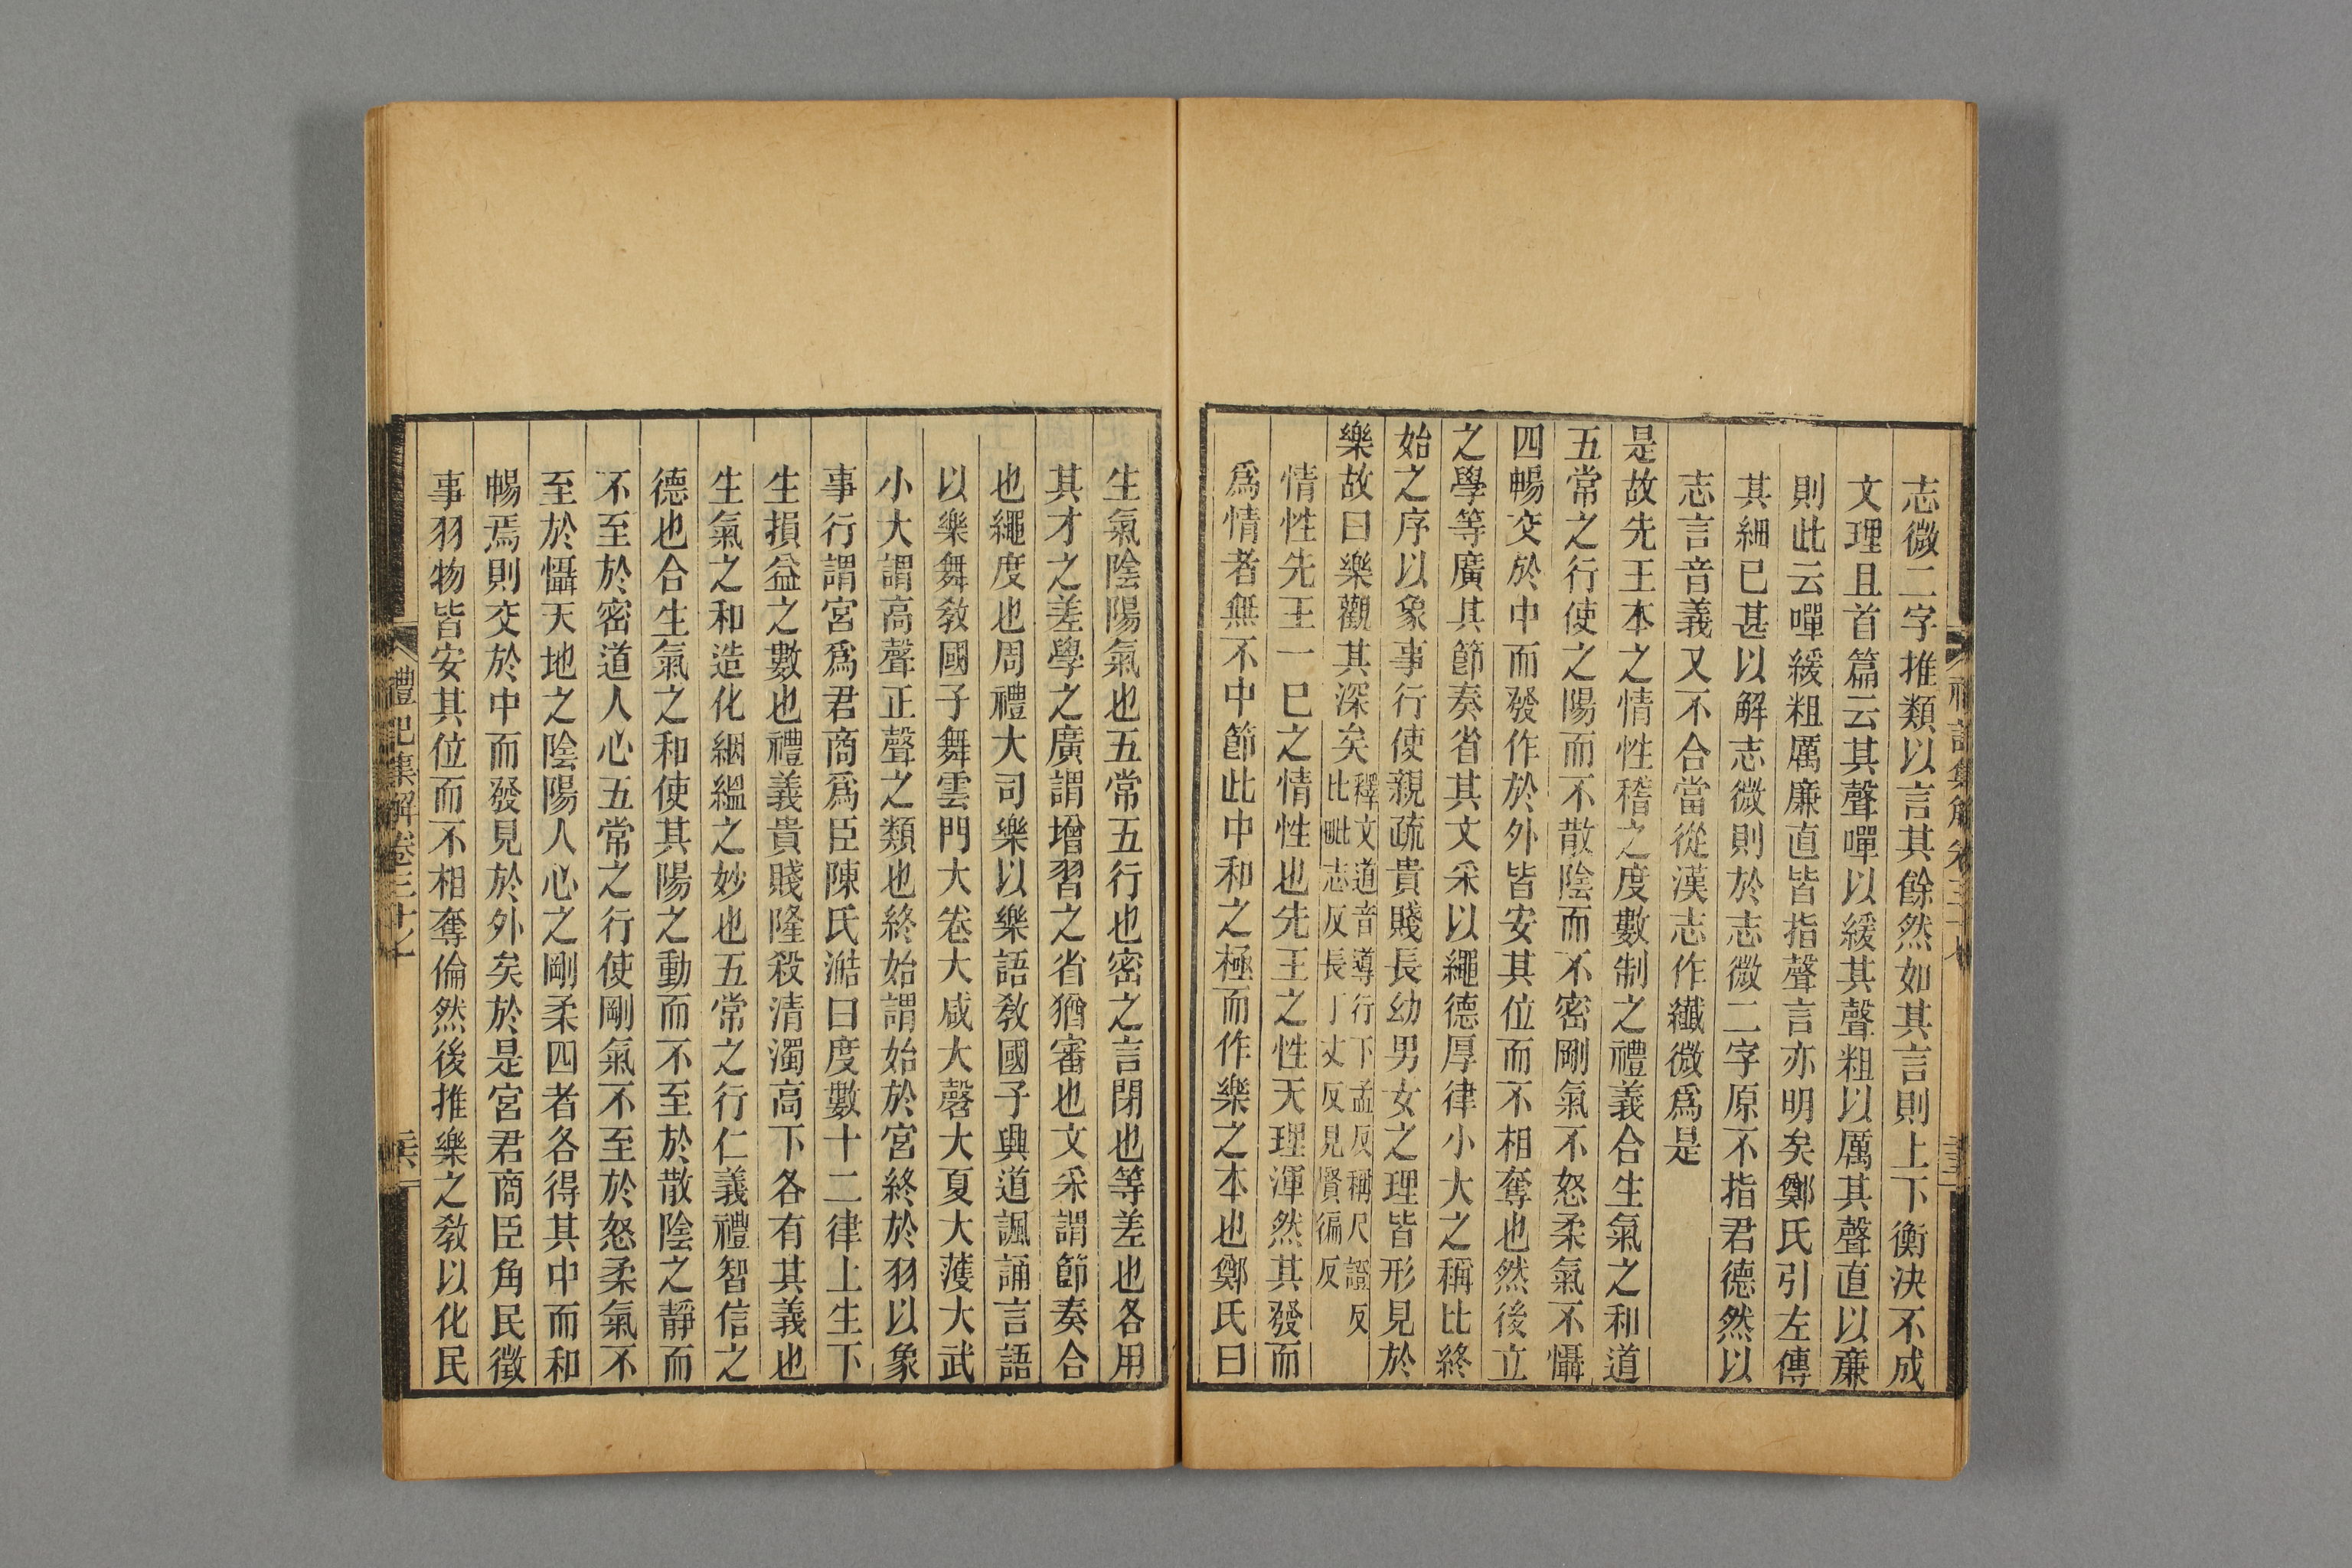 志微二字推類以言其餘然如其言則上下衡決不成
文理且首篇云其聲嘽以緩其聲粗以厲其聲直以廉
則此云嘽緩粗厲廉直皆指聲言亦明矣鄭氏引左傳
其細已甚以解志微則於志微二字原不指君德然以
志言音義又不合當從漢志作纖微爲是
是故先王本之情性稽之度數制之禮義合生氣之和道
五常之行使之陽而不散陰而不密剛氣不怒柔氣不懾
四暢交於中而發作於外皆安其位而不相奪也然後立
之學等廣其節奏省其文采以繩德厚律小大之稱比終
始之序以象事行使親疏貴賤長幼男女之理皆形見於
樂故曰樂觀其深矣
釋文道音導行下孟反稱尺證反
比毗志反長丁丈反見賢徧反
情性先王一巳之情性也先王之性天理渾然其發而
爲情者無不中節此中和之極而作樂之本也鄭氏曰
生氣陰陽氣也五常五行也密之言閉也等差也各用
其才之差學之廣謂增習之省猶審也文采謂節奏合
也繩度也周禮大司樂以樂語敎國子興道諷誦言語
以樂舞敎國子舞雲門大卷大咸大磬大夏大濩大武
小大謂高聲正聲之類也終始謂始於宮終於羽以象
事行謂宮爲君商爲臣陳氏澔曰度數十二律上生下
生損益之數也禮義貴賤隆殺淸濁高下各有其義也
生氣之和造化絪縕之妙也五常之行仁義禮智信之
德也合生氣之和使其陽之動而不至於散陰之靜而
不至於密道人心五常之行使剛氣不至於怒柔氣不
至於懾天地之陰陽人心之剛柔四者各得其中而和
暢焉則交於中而發見於外矣於是宮君商臣角民徵
事羽物皆安其位而不相奪倫然後推樂之敎以化民
禮記集解卷三十七